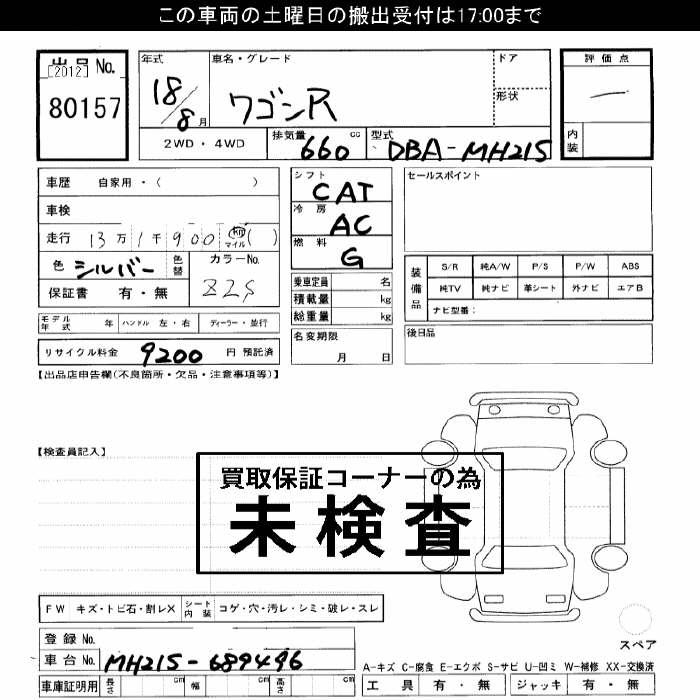 この車両の土曜日の搬出受付は17:00まで
出品No.
[2012]
80157
年式
18/8月
車名・グレード
ワゴンR
ドア
形状
評価点
内装
2WD・4WD
排気量 660 cc
型式 DBA-MH21S
車歴 自家用・( )
車検
走行 13万1千900 km マイル ( )
色 シルバー 色替
カラーNo. Z2S
保証書 有・無
シフト CAT
冷房 AC
燃料 G
乗車定員 名
積載量 kg
総重量 kg
セールスポイント
装備品
S/R 純A/W P/S P/W ABS
純TV 純ナビ 革シート 外ナビ エアB
ナビ型番:
モデル年式 年 ハンドル 左・右 ディーラー・並行
名変期限 月 日
後日品
リサイクル料金 9200 円 預託済
【出品店申告欄(不良箇所・欠品・注意事項等)】
【検査員記入】
買取保証コーナーの為
未検査
FW キズ・トビ石・割レX
シート内装 コゲ・穴・汚レ・シミ・破レ・スレ
スペア
登録No.
車台No. MH21S-689496
車庫証明用 長さ cm 幅 cm 高さ cm
A-キズ C-腐食 E-エクボ S-サビ U-凹ミ W-補修 XX-交換済
工具 有・無 ジャッキ 有・無